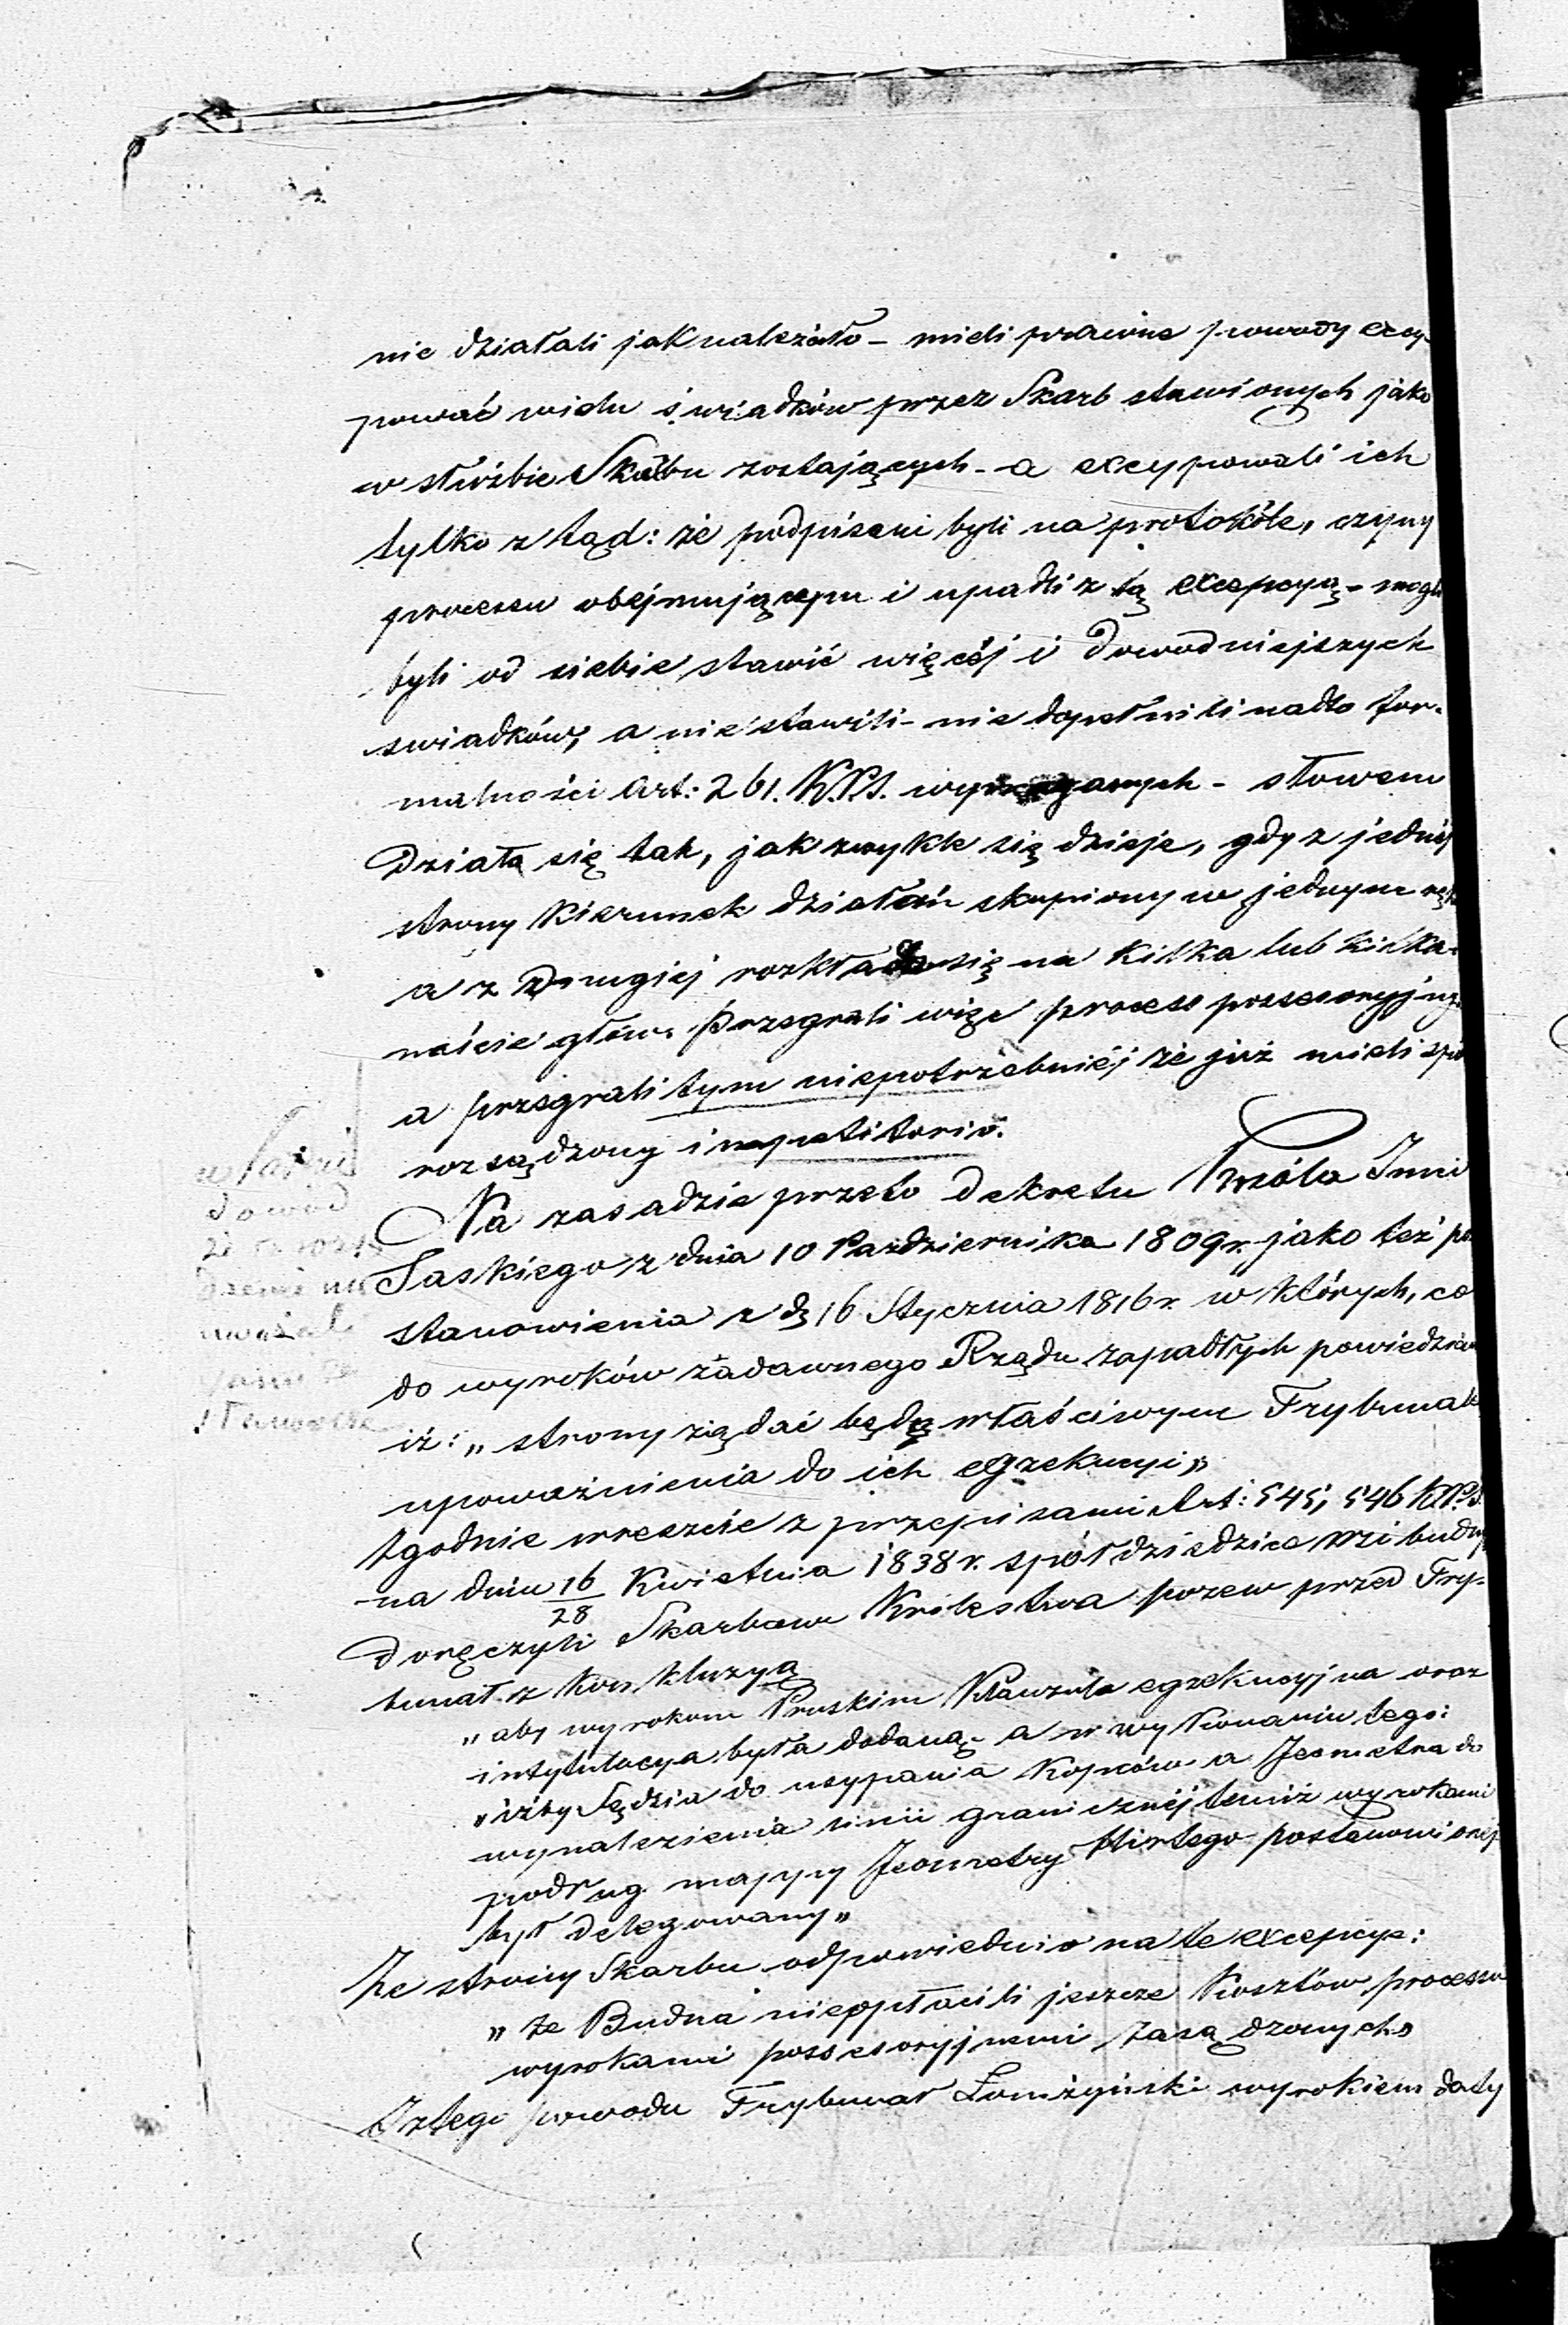 nie działali jak należało – mieli prawne powody excy-
pować wielu świadków przez Skarb stawionych jako
w służbie Skarbu zostających – a excypowali ich
tylko z tąd: że podpisani byli na protokóle, czyny
processu obejmującym i upadli z tą excepcyą – mogli
byli od siebie stawić więcéj i dowodniejszych
swiadków, a nie stawili – nie dopełnili nadto for-
malności Art: 261. K.P.S. wymaganych – słowem
Działa się tak, jak zwykle się dzieje, gdy z jednéj
strony kierunek działań skupiony w jednym ręku
a z drugiej rozkłada się na kilka lub kilka-
naście głów. Przegrali więc process possessoryjny
a przegrali tym niepotrzebniéj że już mieli spór
rozsądzony in petitorio.
Na zasadzie przeto dekretu Króla Jmci
Saskiego z dnia 10 Pazdziernika 1809 r. jako też po
stanowienia z d. 16 Stycznia 1816 r. w których, co
do wyroków zadawnego Rządu zapadłych powiedziano
iż: „ strony żądać będą właściwym Trybunale
upoważnienia do ich egzekucyi „
Zgodnie wreszcie z przepisami Art: 545, 546 K.P.S.
na dniu 16/28 Kwietnia 1838 r. spółdziedzice wsi budny
doręczyli Skarbowi Królestwa pozew przed Try-
bunał z Konkluzyą
„ aby wyrokom Pruskim Klauzula egzekucyjna oraz
intytulacya była dodaną – a w wykonaniu tego:
„ iżby Sędzia do usypania Kopców a Jeometra do
wynalezienia linii granicznéj temiż wyrokami
podług mappy Jeometry Hirtego postanowionéj
był delegowany „
Ze strony Skarbu odpowiednio na te excepcye:
„ że Budna nieopłacili jeszcze Kosztów processu
wyrokami possessoryjnemi zasądzonych „
Z tego powodu Trybunał Łomżyński wyrokiem daty
dowod
uważal